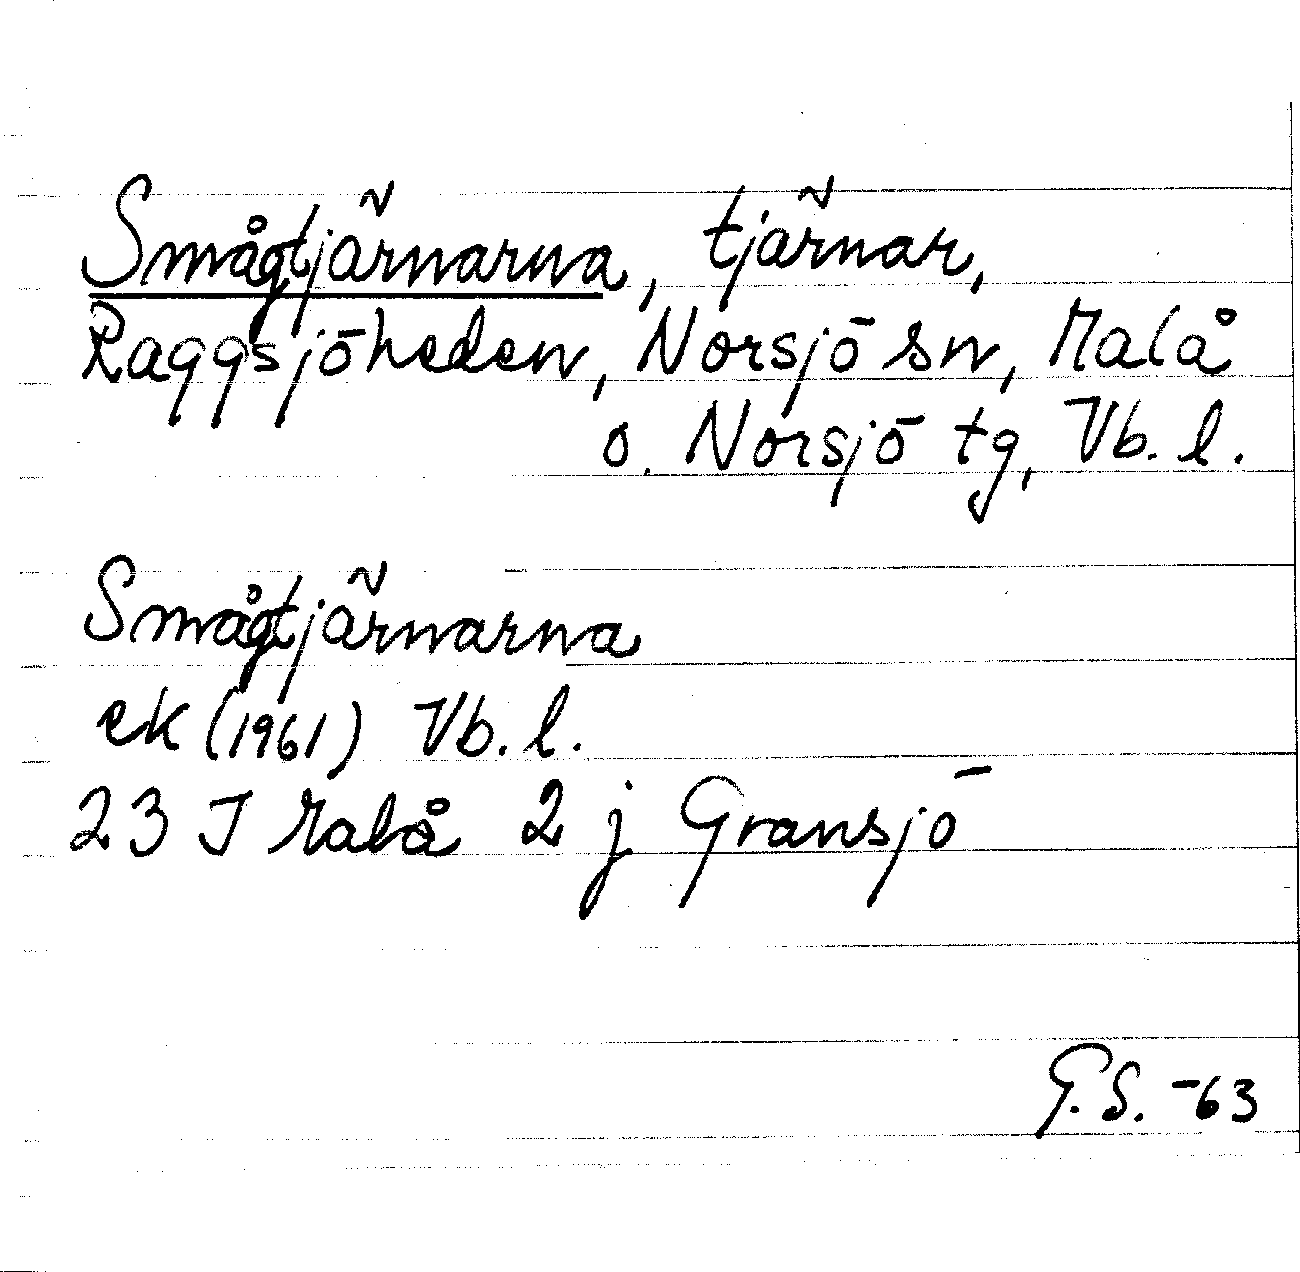 Smågtjärnarna, tjärnar,
Raggsjöheden, Norsjö sn, Malå
o. Norsjö tg, Vb. l.
Smågtjärnarna
ek (1961) Vb. l.
23 J Malå 2 j Gransjö
G.S. -63